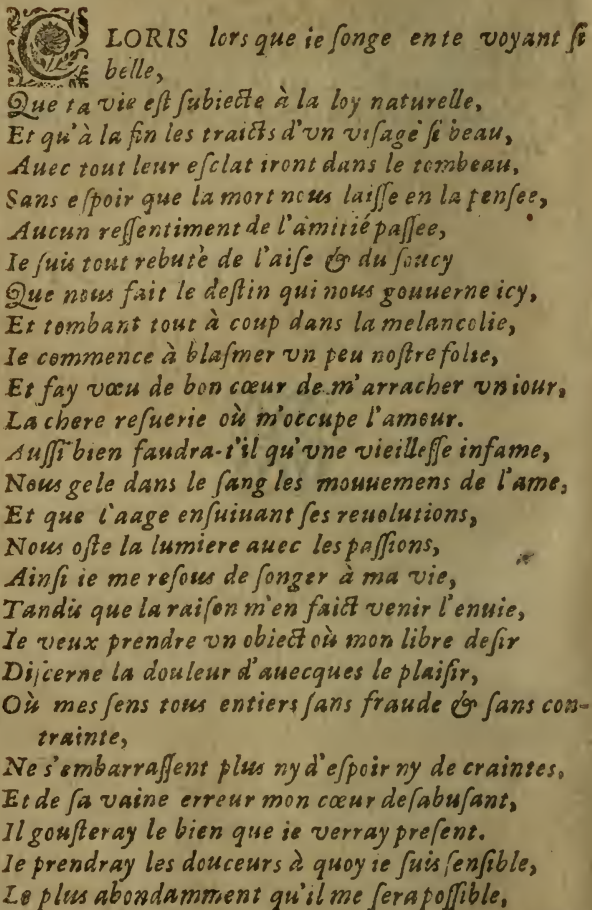 CLORIS lors que ie ſonge en te voyant ſi
belle,
Que ta vie eſt ſubiecte à la loy naturelle,
Et qu'à la fin les traicts d'vn viſage ſi beau,
Auec tout leur eſclat iront dans le tombeau,
Sans eſpoir que la mort nous laiſſe en la penſee,
Aucun reſſentiment de l'amitié paſſee,
Ie ſuis tout rebuté de l'aiſe & du ſoucy
Que nous fait le deſtin qui nous gouuerne icy,
Et tombant tout à coup dans la melancolie,
Ie commence à blaſmer vn peu noſtre folie,
Et fay vœu de bon cœur de m'arracher vn iour,
La chere reſuerie où m'occupe l'amour.
Auſſi bien faudra-t'il qu'vne vieilleſſe infame,
Nous gele dans le ſang les mouuemens de l'ame,
Et que l'aage enſuiuant ſes reuolutions,
Nous oſte la lumiere auec les paſſions,
Ainſi ie me reſous de ſonger à ma vie,
Tandis que la raiſon m'en faict venir l'enuie,
Ie veux prendre vn obiect où mon libre deſir
Diſcerne la douleur d'auecques le plaiſir,
Où mes ſens tous entiers ſans fraude & ſans con-
trainte,
Ne s'embarraſſent plus ny d'eſpoir ny de craintes,
Et de ſa vaine erreur mon cœur deſabuſant,
Il gouſteray le bien que ie verray preſent.
Ie prendray les douceurs à quoy ie ſuis ſenſible,
Le plus abondamment qu'il me ſera poſſible,